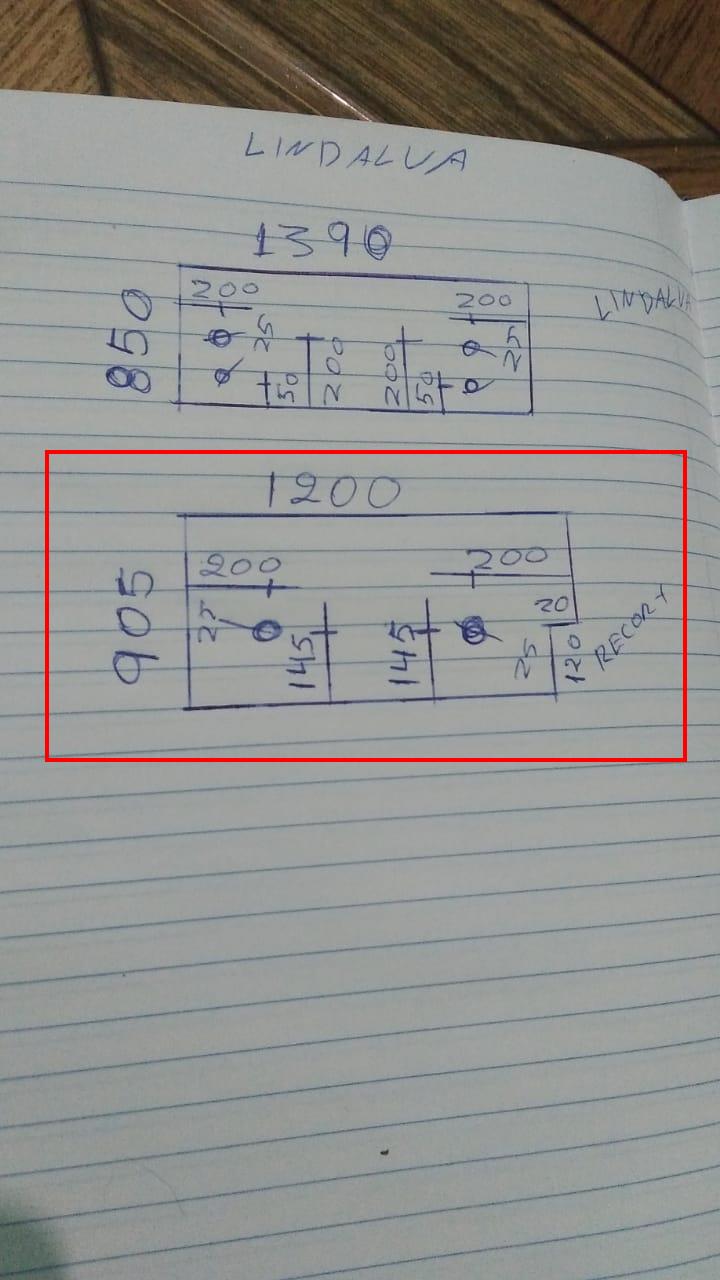 LINDALVA
1390
200
200
LINDALVA
850
25
25
50
200
200
50
1200
200
200
905
25
20
145
145
25
120
RECORT